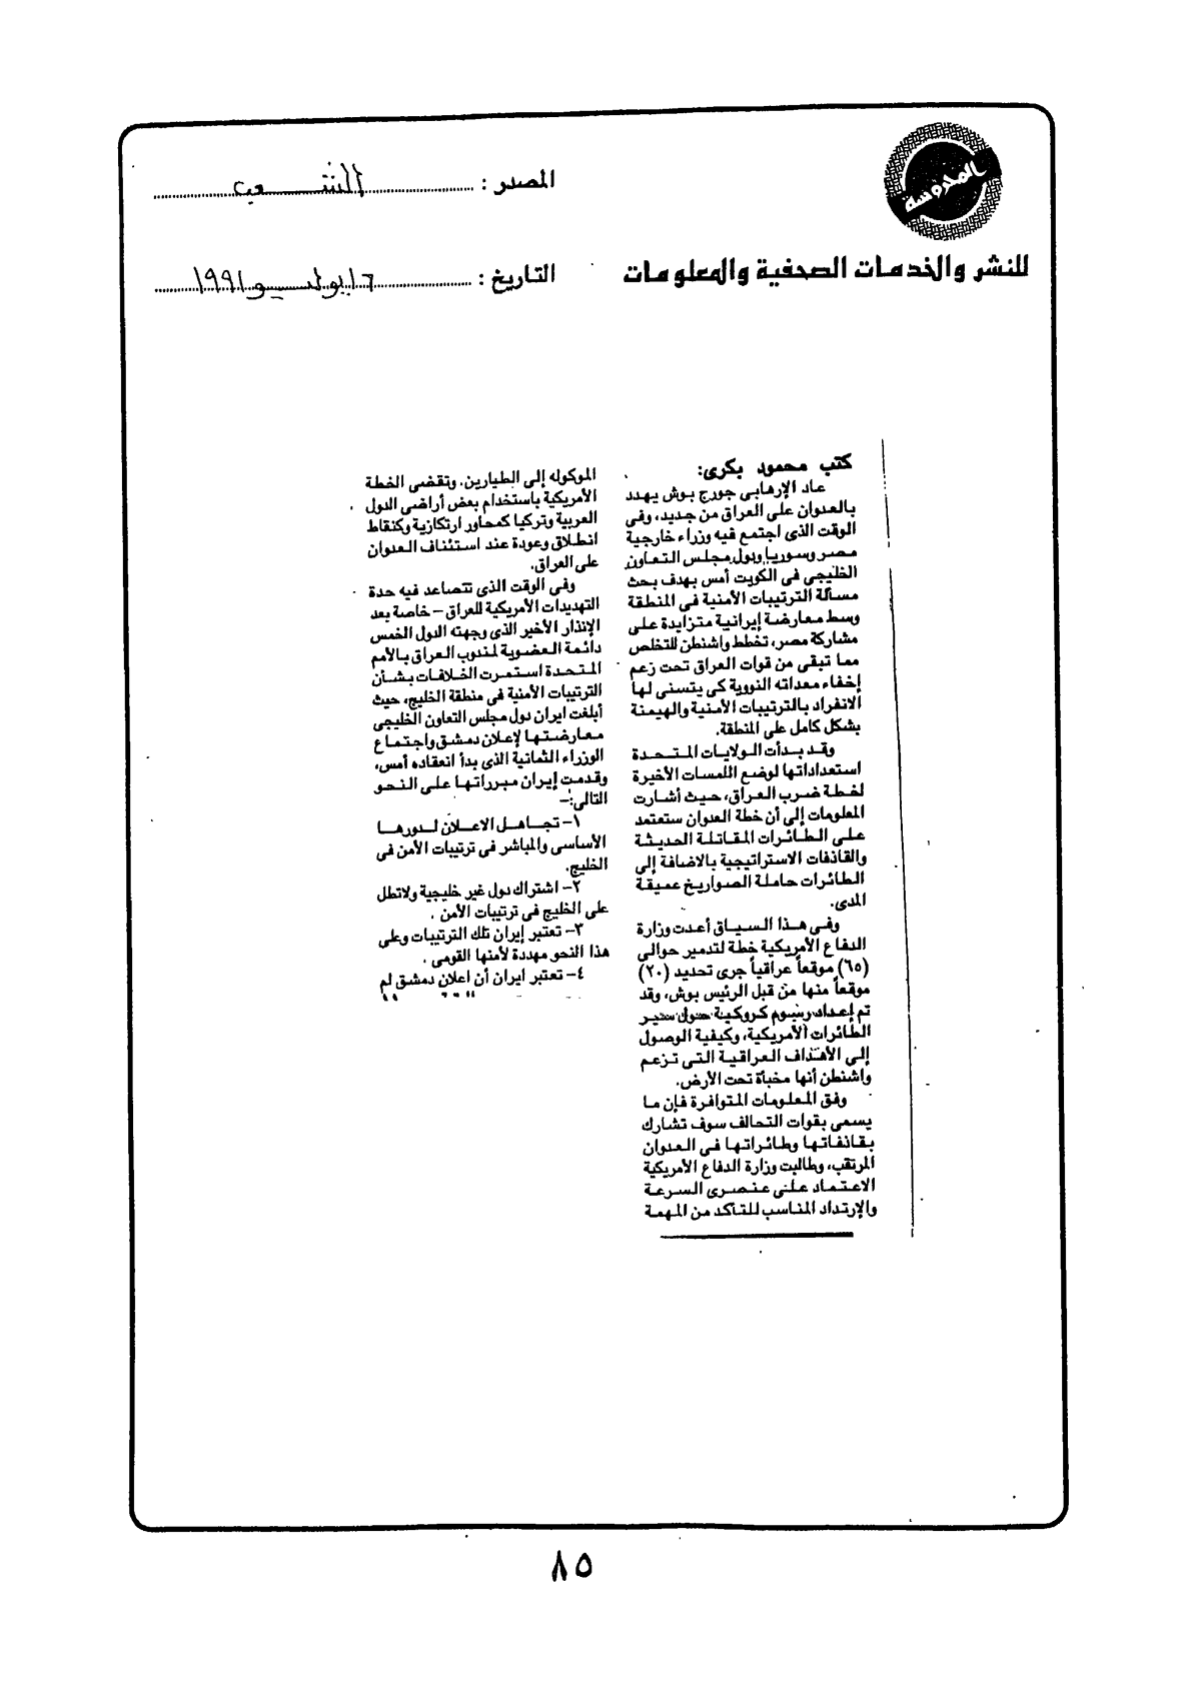 المحروسة
للنشر والخدمات الصحفية والمعلومات
المصدر : الشعب
التاريخ : ١٦ يوليو ١٩٩١
كتب محمود بكرى:
عاد الإرهابى جورج بوش يهدد
بالعدوان على العراق من جديد، وفى
الوقت الذى اجتمع فيه وزراء خارجية
مصر وسوريا ودول مجلس التعاون
الخليجى فى الكويت أمس بهدف بحث
مسألة الترتيبات الأمنية فى المنطقة
وسط معارضة إيرانية متزايدة على
مشاركة مصر، تخطط واشنطن للتخلص
مما تبقى من قوات العراق تحت زعم
إخفاء معداته النووية كى يتسنى لها
الانفراد بالترتيبات الأمنية والهيمنة
بشكل كامل على المنطقة.
وقد بدأت الولايات المتحدة
استعداداتها لوضع اللمسات الأخيرة
لخطة ضرب العراق، حيث أشارت
المعلومات إلى أن خطة العدوان ستعتمد
على الطائرات المقاتلة الحديثة
والقاذفات الاستراتيجية بالاضافة إلى
الطائرات حاملة الصواريخ عميقة
المدى.
وفى هذا السياق أعدت وزارة
الدفاع الأمريكية خطة لتدمير حوالى
(٦٥) موقعاً عراقياً جرى تحديد (٢٠)
موقعاً منها من قبل الرئيس بوش، وقد
تم إعداد رسوم كروكية حول سير
الطائرات الأمريكية، وكيفية الوصول
إلى الأهداف العراقية التى تزعم
واشنطن أنها مخبأة تحت الأرض.
وفق المعلومات المتوافرة فإن ما
يسمى بقوات التحالف سوف تشارك
بقاذفاتها وطائراتها فى العدوان
المرتقب، وطالبت وزارة الدفاع الأمريكية
الاعتماد على عنصرى السرعة
والإرتداد المناسب للتأكد من المهمة
الموكوله إلى الطيارين. وتقضى الخطة
الأمريكية باستخدام بعض أراضى الدول
العربية وتركيا كمحاور ارتكازية وكنقاط
انطلاق وعودة عند استئناف العدوان
على العراق.
وفى الوقت الذى تتصاعد فيه حدة
التهديدات الأمريكية للعراق – خاصة بعد
الإنذار الأخير الذى وجهته الدول الخمس
دائمة العضوية لمندوب العراق بالأمم
المتحدة استمرت الخلافات بشأن
الترتيبات الأمنية فى منطقة الخليج، حيث
أبلغت ايران دول مجلس التعاون الخليجى
معارضتها لإعلان دمشق واجتماع
الوزراء الثمانية الذى بدأ انعقاده أمس،
وقدمت إيران مبرراتها على النحو
التالى:–
١– تجاهل الاعلان لدورها
الأساسى والمباشر فى ترتيبات الأمن فى
الخليج.
٢– اشتراك دول غير خليجية ولاتطل
على الخليج فى ترتيبات الأمن .
٣– تعتبر إيران تلك الترتيبات وعلى
هذا النحو مهددة لأمنها القومى .
٤– تعتبر ايران أن اعلان دمشق لم
٨٥